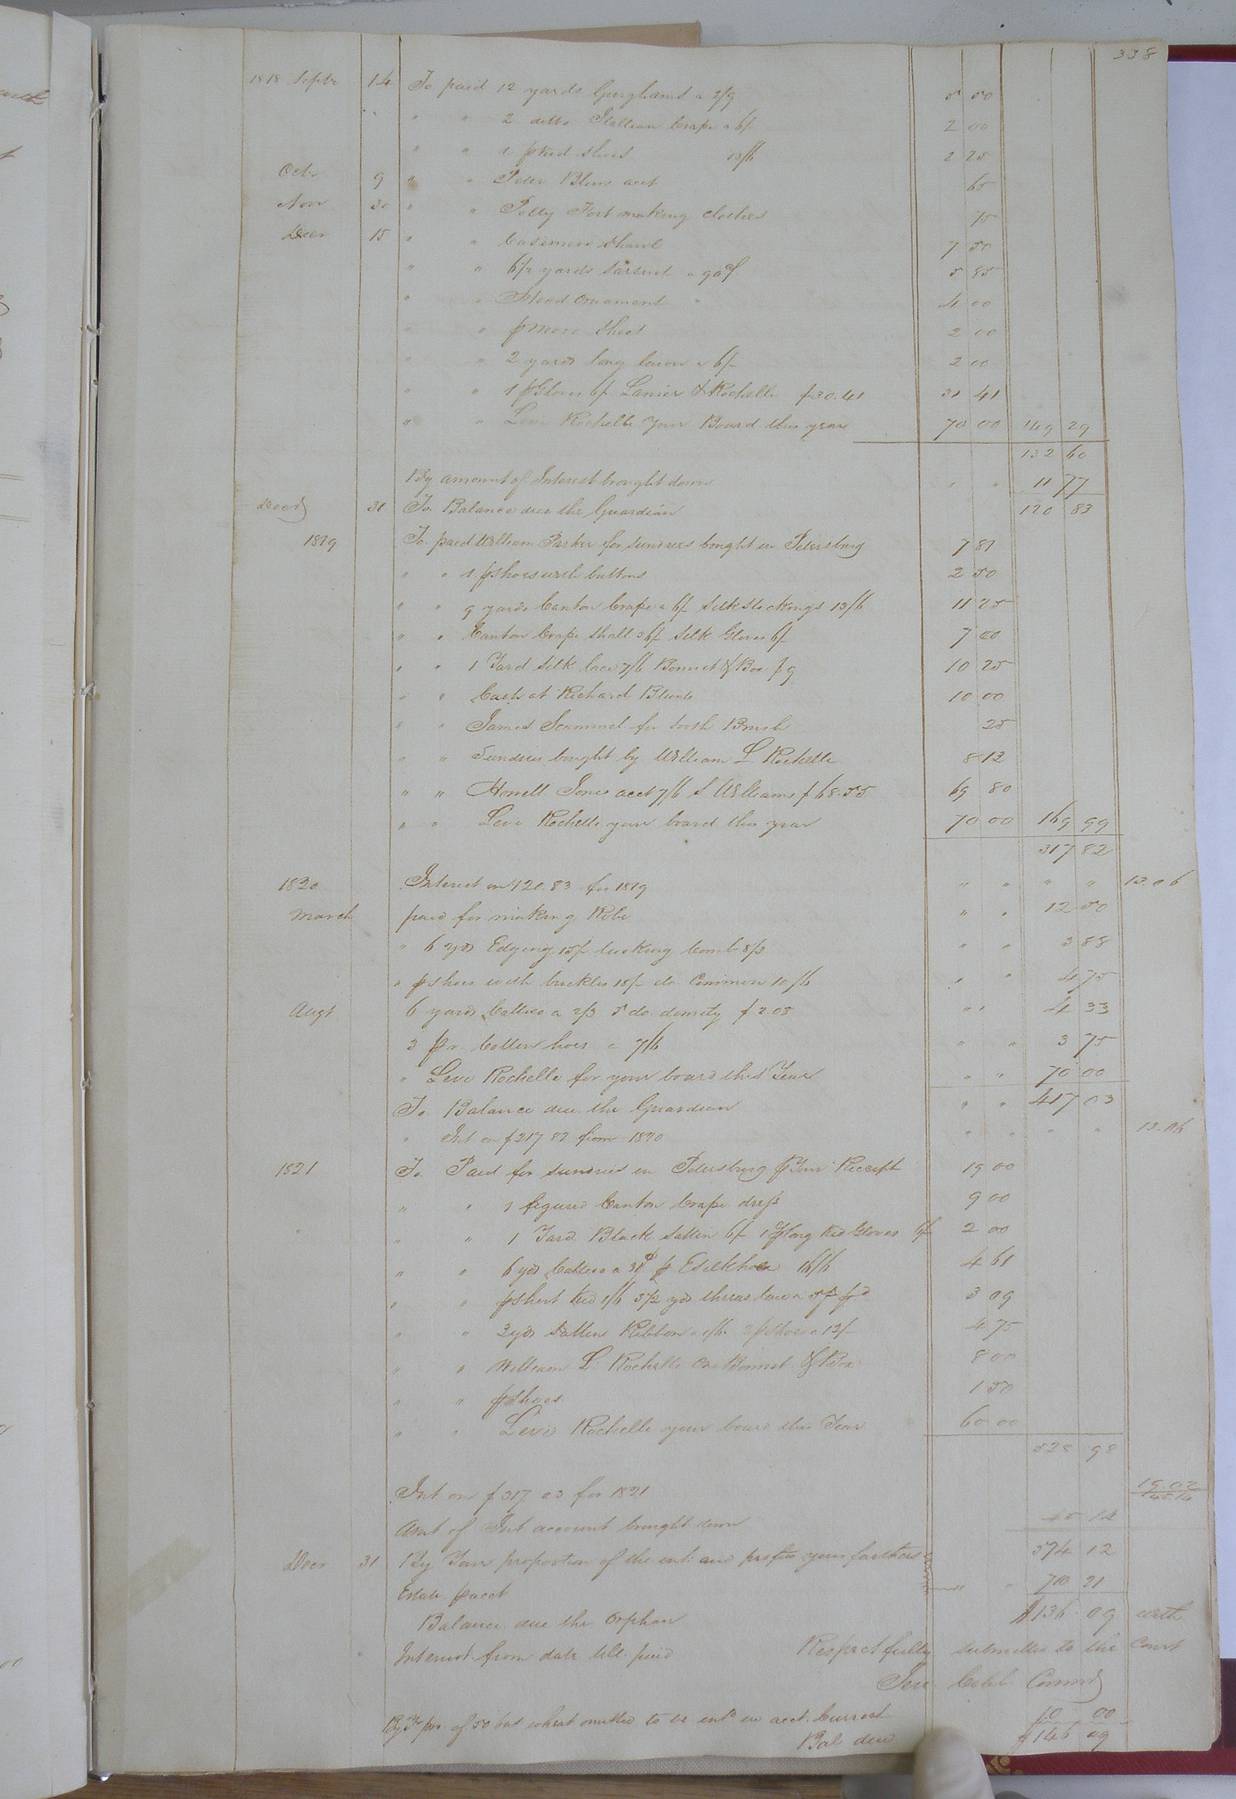 338
1818 Septr 14 To paid 12 yards Gingham a 2/9 5 50
" " 2 ditto Italian Crape a 6/ 2 00
" " 1 pr kid shoes 13/6 2 25
Octr 9 " " Peter Blow acct 65
Novr 30 " " Polly Fort making clothes 75
Decr 15 " " Casimere Shawl 7 50
" " 6 1/2 yards Sarsnet a 90d 5 85
" " Head Ornament " 4 00
" " pr Moro Shoes 2 00
" " 2 yards long lawn a 6/- 2 00
" " 1 pr Gloves 6/ Lanier & Rochelle $30.41 31 41
" " Levi Rochelle Your Board this year 70 00 149 29
132 60
By amount of Interest brought down " " 11 77
Decr 31 To Balance due the Guardian 120 83
1819 To paid William Parker for sundries bought in Petersburg 7 81
" " 1 pr shoes with buttons 2 50
" " 9 yards Canton Crape a 6/ silk stockings 13/6 11 25
" " Canton Crape Shall 36/ Silk Gloves 6/ 7 00
" " 1 Yard silk lace 7/6 Bonnet & Box $9 10 25
" " Cash at Richard Blunts 10 00
" " James Scammel for tooth Brush 25
" " Sundries bought by William L Rochelle 8 12
" " Howell Jones acct 7/6 S Williams $68.55 69 80
" " Levi Rochelle your board this year 70 00 169 99
317 82
1820 Interest on 120.83 for 1819 " " " " 13.06
March paid for making Robe " " 12 50
" 6 yds Edging 15/- tucking Comb 8/3 " " 3 88
" pr shoes with buckles 18/- do common 10/6 " " 4 75
Augt 6 yards Callico a 2/3 5 do dimity $2.08 " " 4 33
3 pr Cotten hose a 7/6 " " 3 75
" Levi Rochelle for your board this Year " " 70 00
To Balance due the Guardian " " 417 03
" Int on $217 82 from 1820 " " " " 13.06
1821 To Paid for sundries in Petersburg pr Your Receipt 19 00
" " 1 figured Canton Crape dress 9 00
" " 1 Yard Black Satten 6/ 1 pr long Kid Gloves 6/ 2 00
" " 6 yds Callico a pr silk hose 16/6 4 61
" " pr short Kid 1/6 3 1/2 yds thread lace a 3 09
" " 3 yds Satten Ribbon a 1/6 2 pr Shoes a 12/- 4 75
" " William L Rochelle Bonnet & Box 8 00
" " pr Shoes 1 50
" " Levi Rochelle your board this Year 60 00
528 98
Int on $317 03 for 1821 19.02
45.14
Amt of Int account brought down 45 14
574 12
Decr 31 By Your proportion of the int and profits your fathers
Estate pr acct " " 710 21
Balance due the Orphan $136 09 with
Interest from date till paid Respectfully submitted to the Court
Jere Cobb Commr
By Yr pro. of 50 bus wheat omitted to be entd in acct. Current 10 00
Bal due $146 09